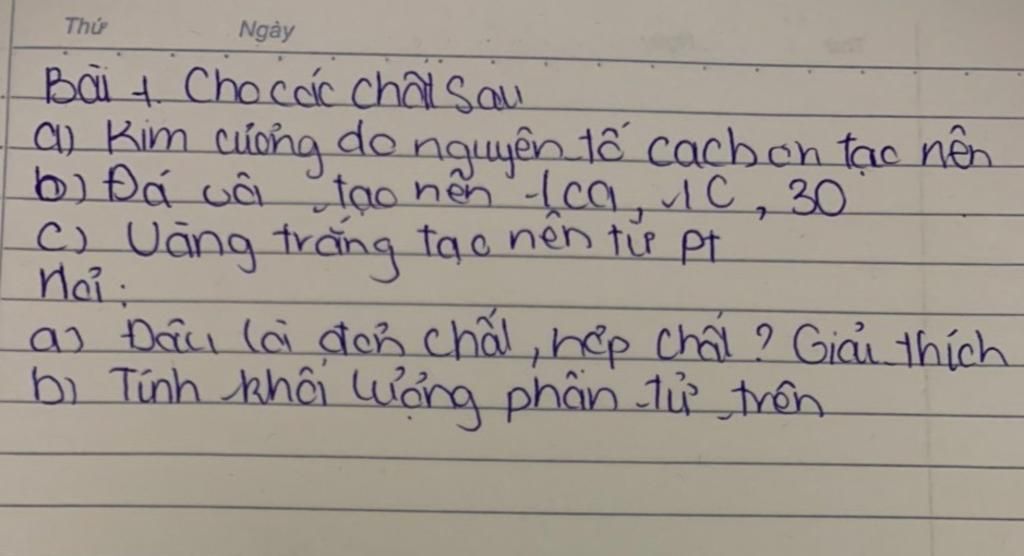 Thứ Ngày
Bài 1. Cho các chất sau
a) Kim cương do nguyên tố cacbon tạo nên
b) Đá vôi tạo nên 1Ca, 1C, 3O
c) Vàng trắng tạo nên từ Pt
Hỏi:
a) Đâu là đơn chất, hợp chất? Giải thích
b) Tính khối lượng phân tử trên